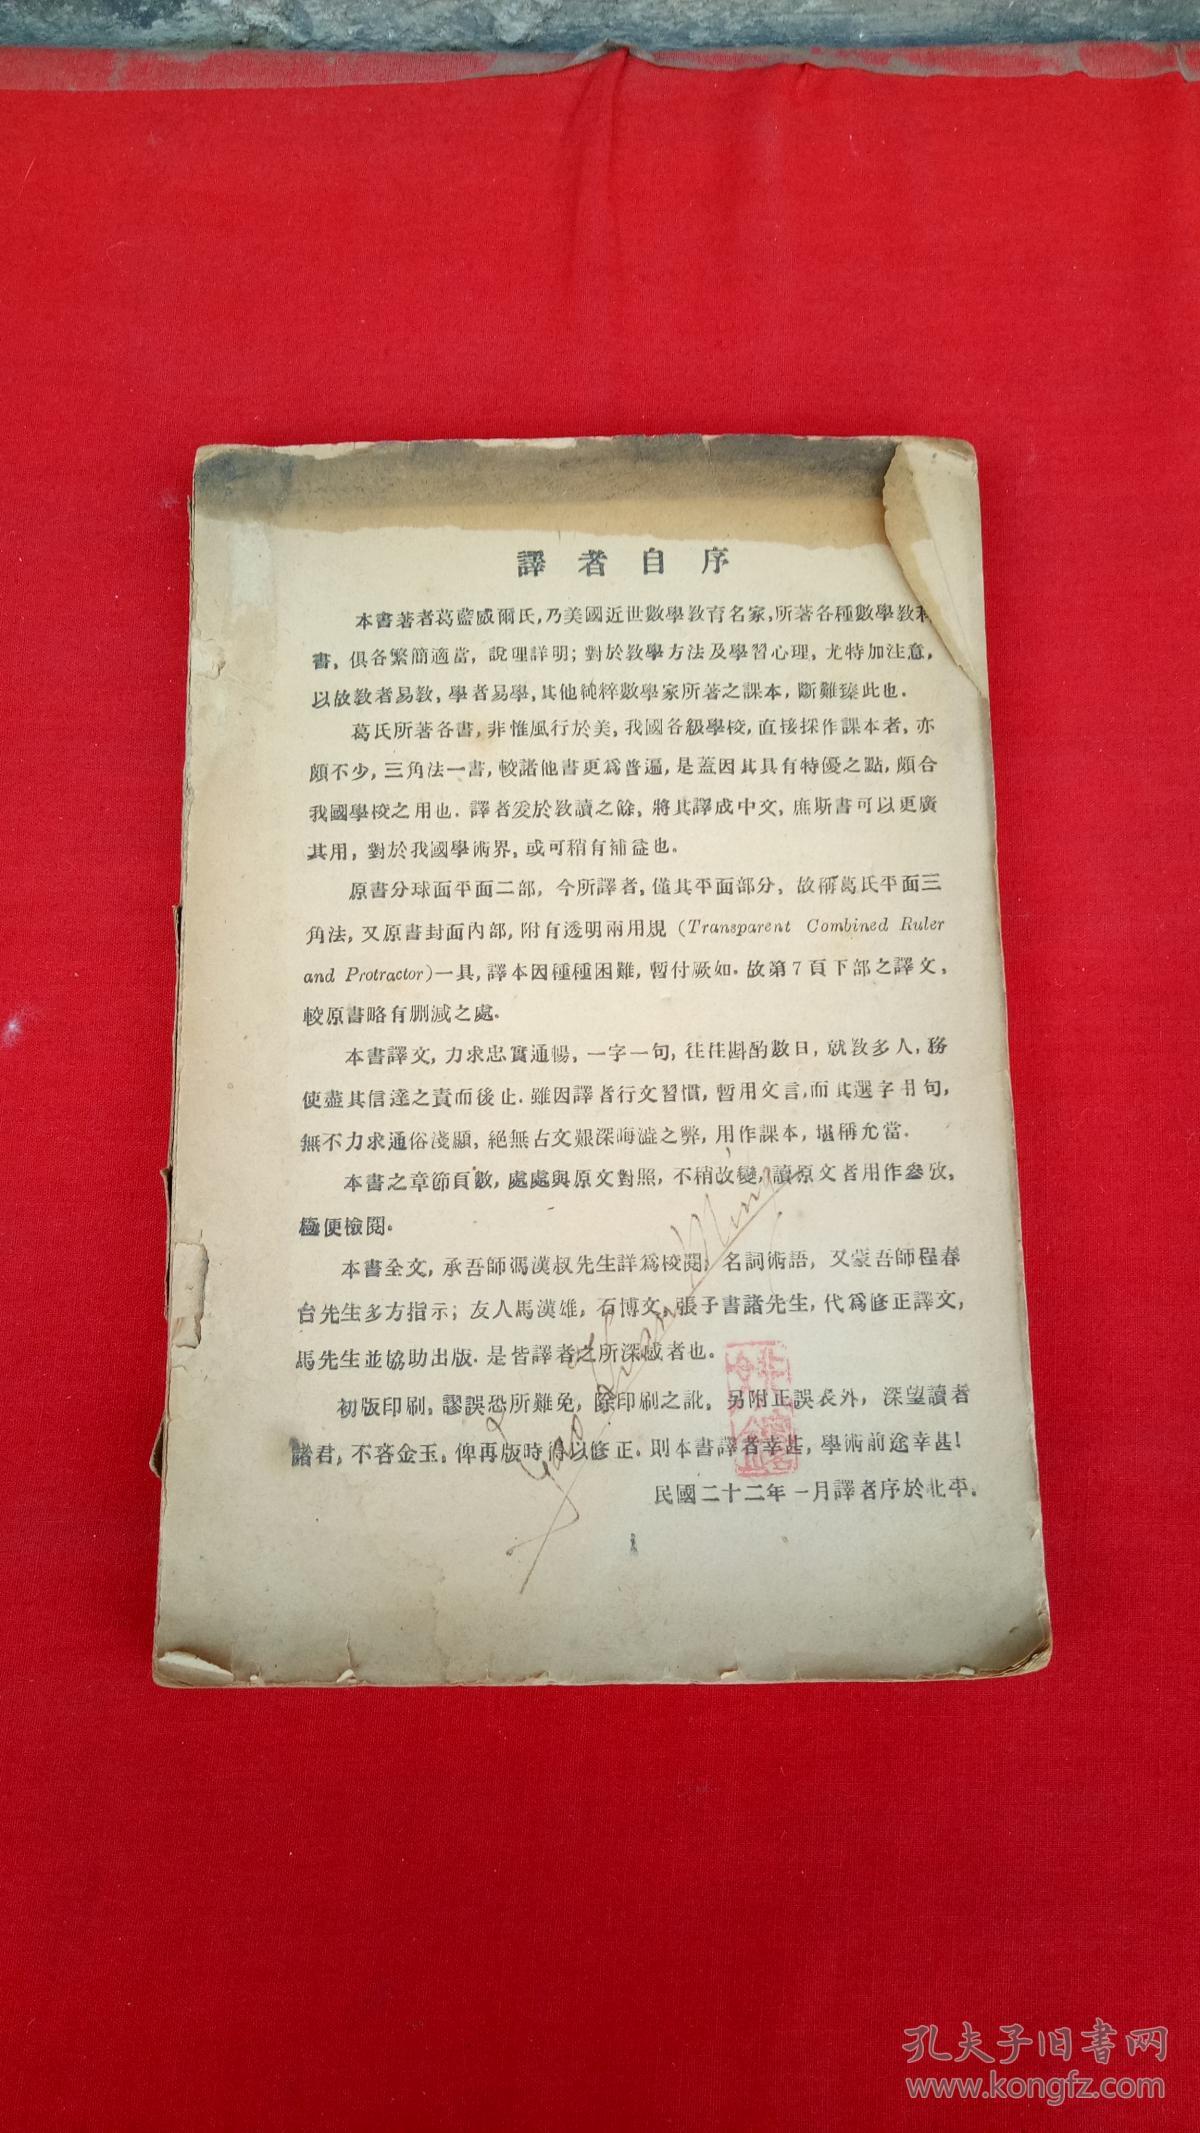 譯者自序
本書著者葛藍威爾氏,乃美國近世數學敎育名家,所著各種數學敎科
書,俱各繁簡適當,說理詳明;對於敎學方法及學習心理,尤特加注意,
以故敎者易敎,學者易學,其他純粹數學家所著之課本,斷難臻此也.
葛氏所著各書,非惟風行於美,我國各級學校,直接採作課本者,亦
頗不少,三角法一書,較諸他書更爲普遍,是蓋因其具有特優之點,頗合
我國學校之用也.譯者爰於敎讀之餘,將其譯成中文,庶斯書可以更廣
其用,對於我國學術界,或可稍有補益也。
原書分球面平面二部,今所譯者,僅其平面部分,故稱葛氏平面三
角法,又原書封面內部,附有透明兩用規(Transparent Combined Ruler
and Protractor)一具,譯本因種種困難,暫付厥如.故第7頁下部之譯文,
較原書略有删減之處.
本書譯文,力求忠實通暢,一字一句,往往斟酌數日,就敎多人,務
使盡其信達之責而後止.雖因譯者行文習慣,暫用文言,而其選字用句,
無不力求通俗淺顯,絕無古文艱深晦澀之弊,用作課本,堪稱允當.
本書之章節頁數,處處與原文對照,不稍改變,讀原文者用作參攷,
極便檢閱.
本書全文,承吾師馮漢叔先生詳爲校閱;名詞術語,又蒙吾師程春
台先生多方指示;友人馬漢雄,石博文,張子書諸先生,代爲修正譯文,
馬先生並協助出版.是皆譯者之所深感者也。
初版印刷,謬誤恐所難免,除印刷之訛,另附正誤表外,深望讀者
諸君,不吝金玉,俾再版時得以修正.則本書譯者幸甚,學術前途幸甚!
民國二十二年一月譯者序於北平.
1
孔夫子旧书网
www.kongfz.com